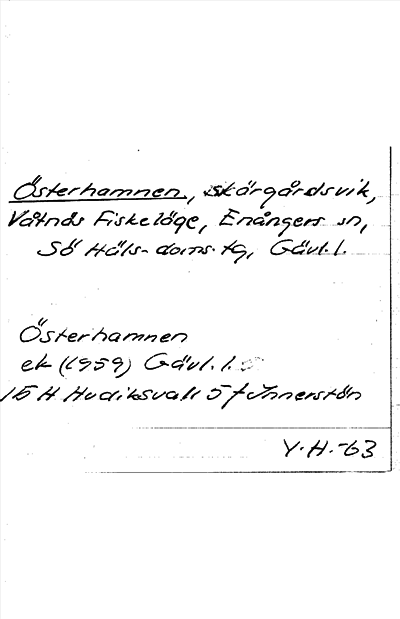 Österhamnen, skärgårdsvik,
Våtnäs Fiskeläge, Enångers sn,
Sö Häls. doms. tg, Gävl. l.
Österhamnen
ek (1959) Gävl. l.
15 H Hudiksvall 5 f Innerstön
Y.H.-63